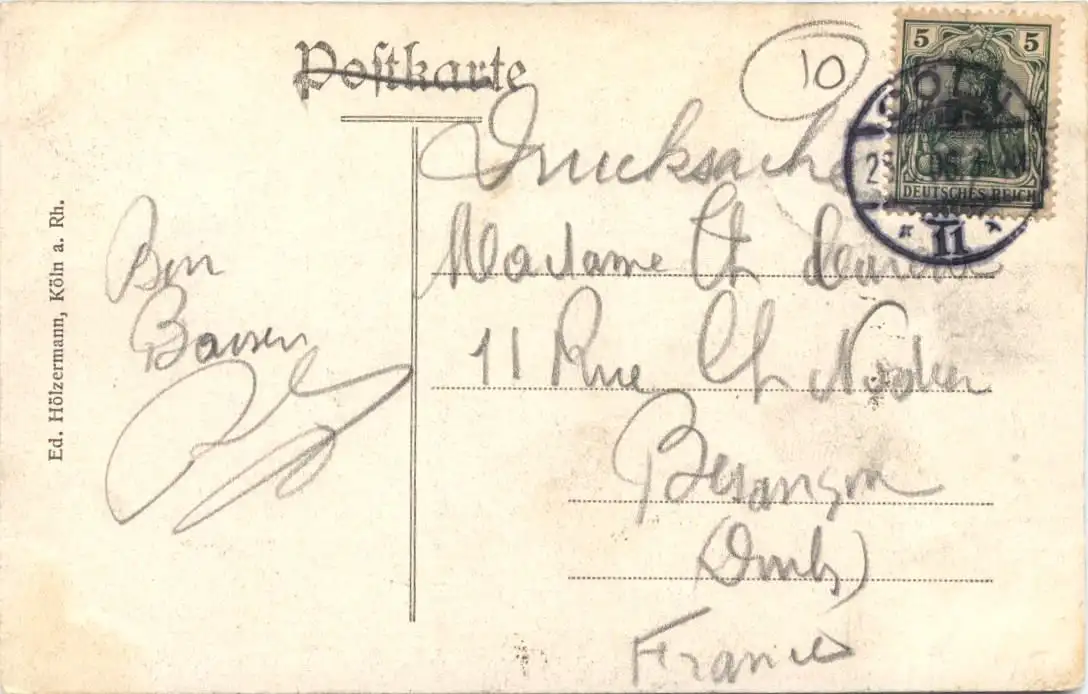 Postkarte
10
5 5
DEUTSCHES REICH
CÖLN
11
Drucksache
Madame Ch
11 Rue Ch Nodier
Besançon
(Doubs)
France
Bon
Baiser
Ed. Hölzermann, Köln a. Rh.